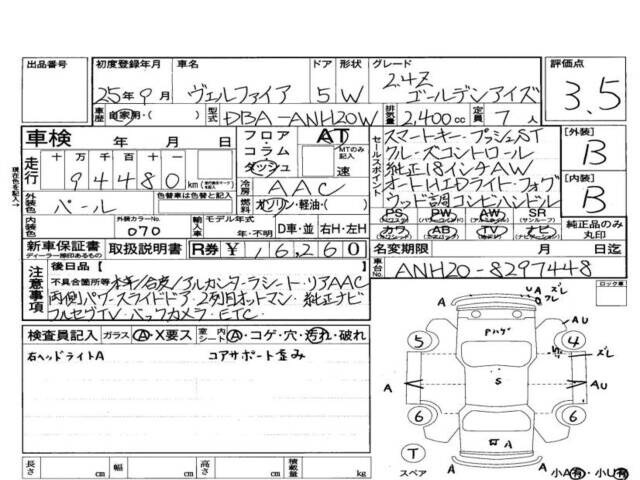 出品番号 初度登録年月 車名 ドア 形状 グレード 評価点
25年9月 ヴェルファイア 5 W 2.4Z ゴールデンアイズ 3.5
車歴 自家用・( ) 型式 DBA-ANH20W 排気量 2,400cc 定員 7人
車検 年 月 日
フロア コラム ダッシュ
AT
MTのみ記入
速
セールスポイント
スマートキー・プッシュST
クルーズコントロール
純正18インチAW
オートHIDライト・フォグ
ウッド調コンビハンドル
[外装] B
[内装] B
走行 十万千百十 94480 km
冷房 AAC
外装色 パール
燃料 ガソリン・軽油・( )
PS PW AW SR
カワ AB TV ナビ
純正品のみ丸印
内装色 外装カラー 070
色替車は元色( )色替え
輸入車 モデル年式 年・不明 D車・並 右H・左H
新車保証書 取扱説明書 R券 ¥16,260
ディーラー捺印あるもの
名変期限 月 日迄
車台No. ANH20-8297448
ロック車
注意事項
後日品[ ]
不具合箇所等 本キノ合皮/アルカンターラシート・リアAAC
両側パワースライドドア・2列目オットマン・純正ナビ
フルセグTV・バックカメラ・ETC・
検査員記入 ガラス A・X要ス 室内シート A・コゲ・穴・汚れ・破れ
右ヘッドライトA コアサポート歪み
U A ズレ
A ズレ
Pハゲ
AU
5 4
ズレ
A S AU
6 6
T
スペア
A A A
小A有・小U有
長さ cm 幅 cm 高さ cm 積載量 kg